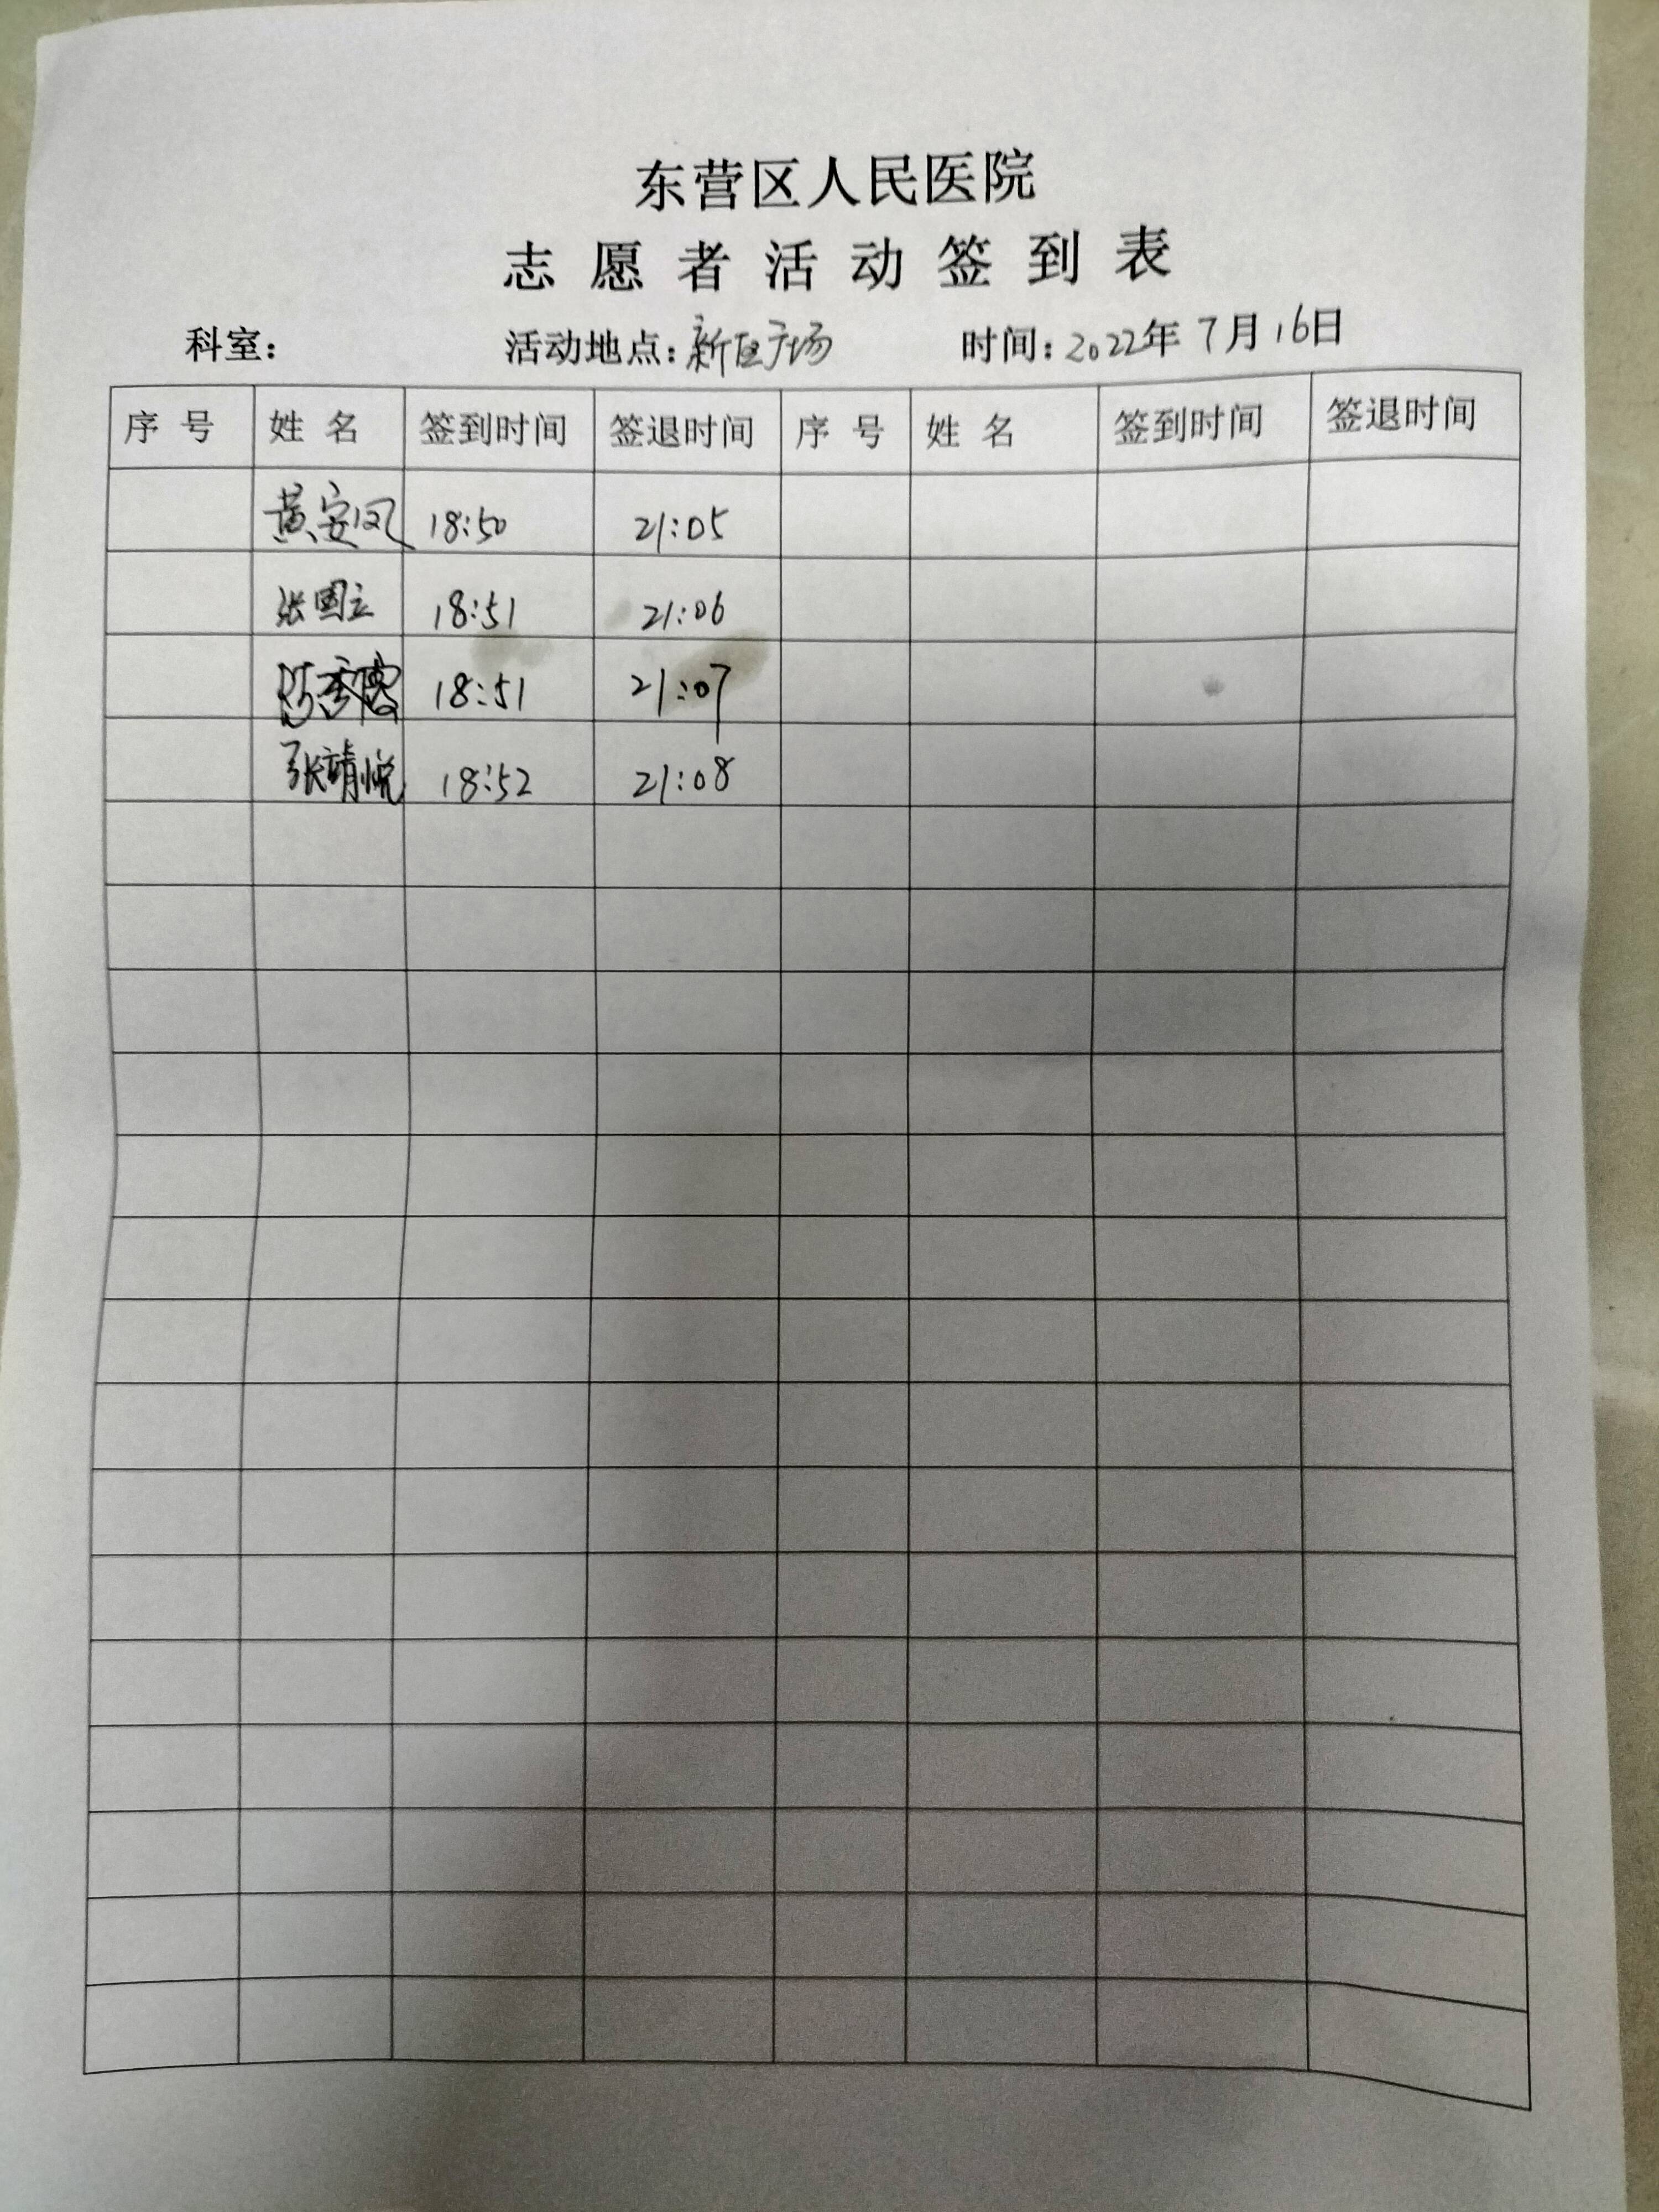 东营区人民医院
志愿者活动签到表
科室: 活动地点:新区广场 时间:2022年7月16日
序号 姓名 签到时间 签退时间 序号 姓名 签到时间 签退时间
黄安凤 18:50 21:05
张国立 18:51 21:06
18:51 21:07
张靖悦 18:52 21:08